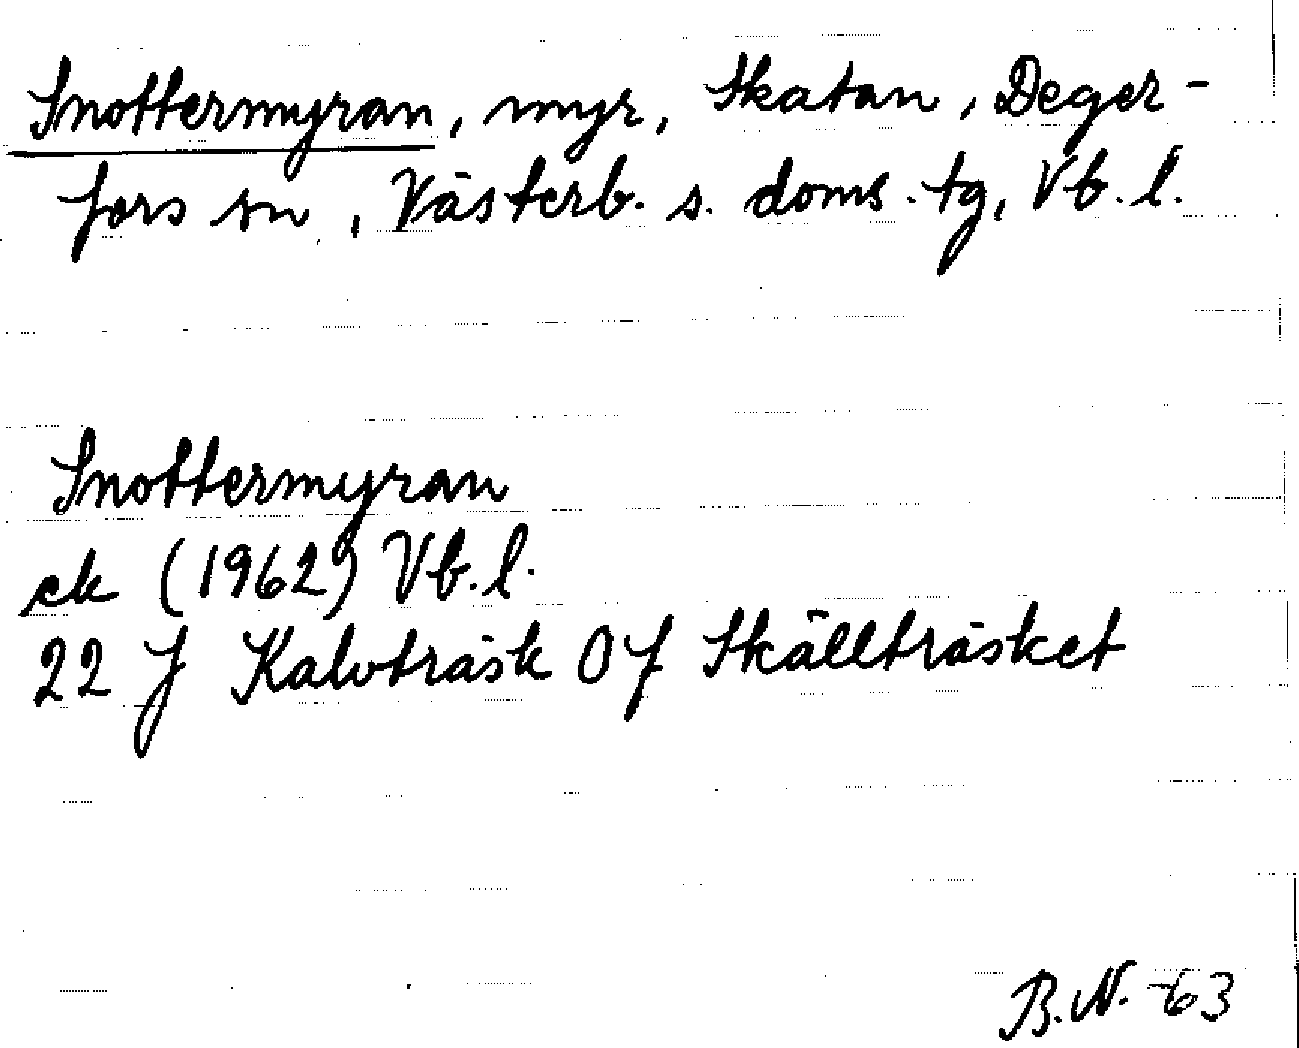 Snottermyran, myr, Skatan, Deger-
fors sn, Västerb. s. doms. tg, Vb. l.
Snottermyran
ek (1962) Vb. l.
22 J Kalvträsk 0 f Skällträsket
B. N. -63